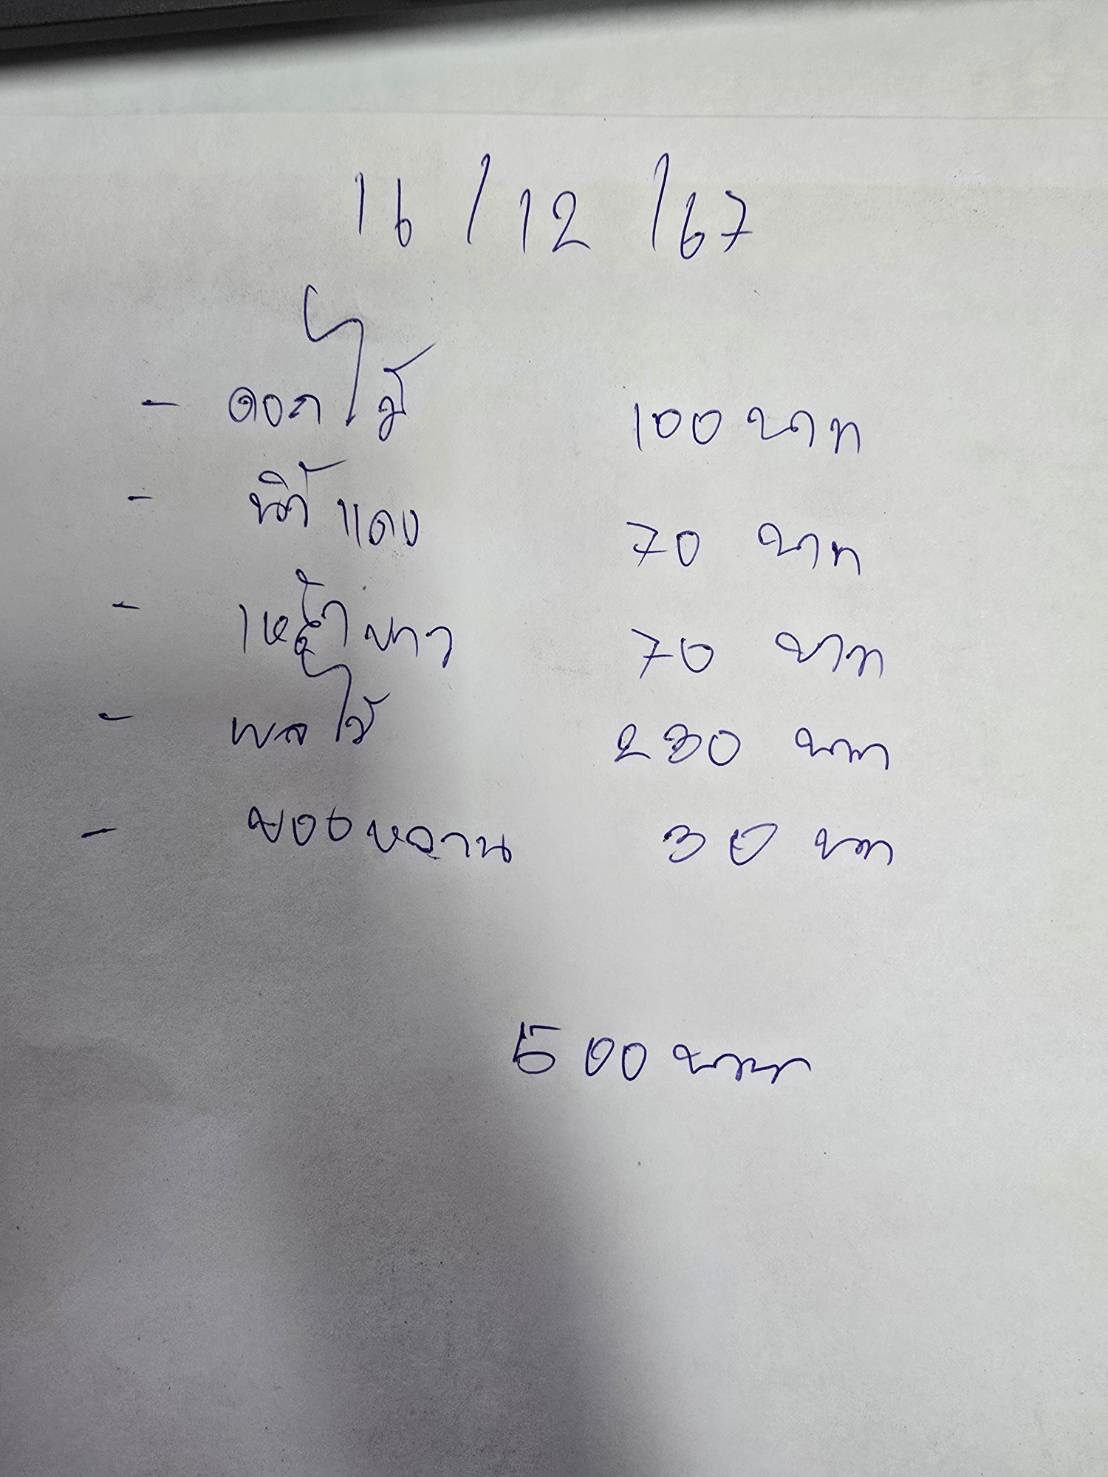 16/12/67
- ดอกไม้ 100 บาท
- น้ำแดง 70 บาท
- เหล้าขาว 70 บาท
- ผลไม้ 230 บาท
- ของหวาน 30 บาท
500 บาท